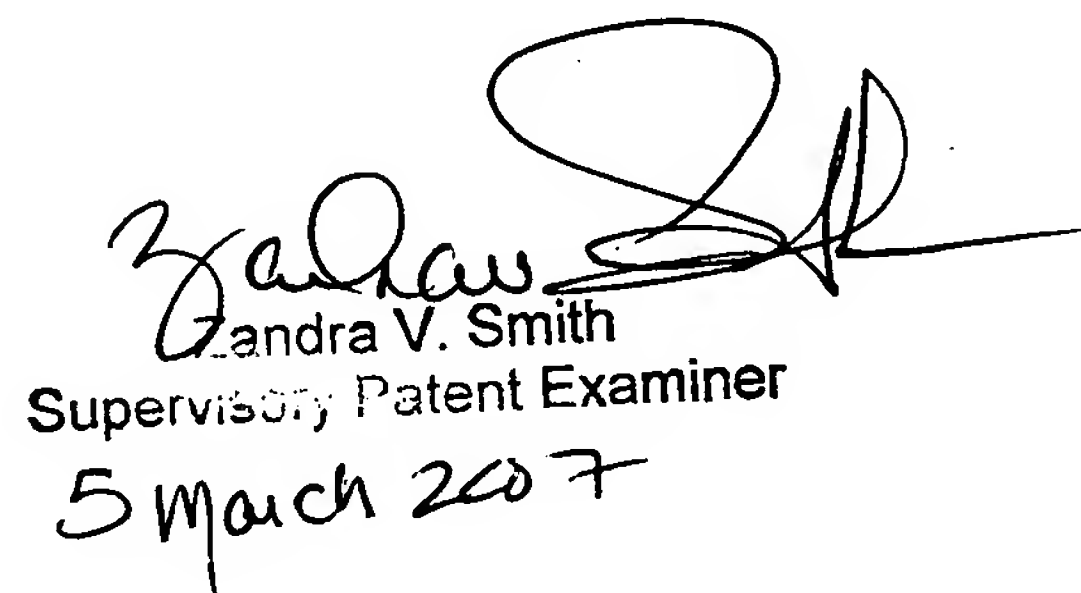 Zandra Smith
Zandra V. Smith
Supervisory Patent Examiner
5 March 2007